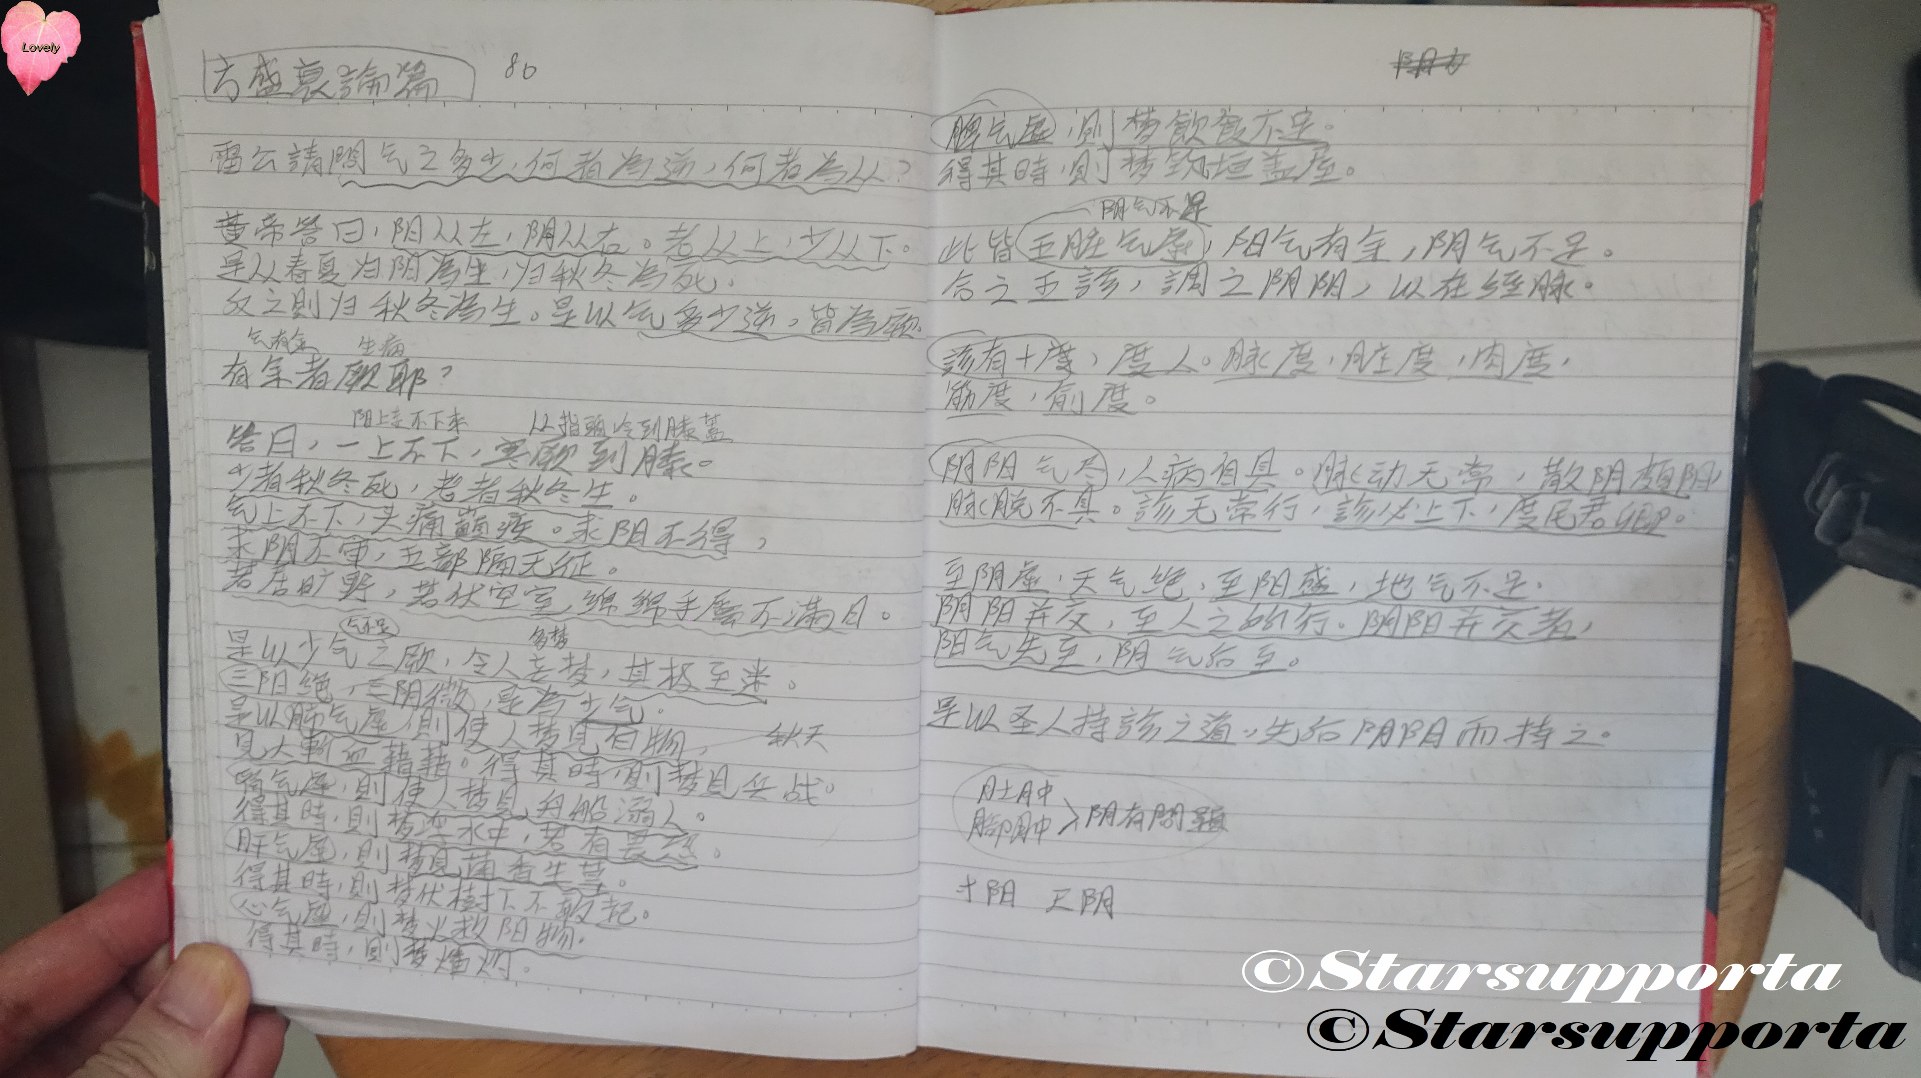 Lovely
方盛衰論篇 80
雷公請問气之多少,何者為逆,何者為从?
黃帝答曰,阳从左,阴从右。老从上,少从下。
是从春夏归阳為生,归秋冬為死。
反之則归秋冬為生。是以气多少逆,皆為厥。
气有余 生病
有余者厥耶?
阳上去不下来 从指頭冷到膝蓋
答曰,一上不下,寒厥到膝。
少者秋冬死,老者秋冬生。
气上不下,头痛巔疾。求阳不得,
求阴不审,五部隔无征。
若居旷野,若伏空室,绵绵乎屬不满日。
气不足 多梦
是以少气之厥,令人妄梦,其极至迷。
三阳绝,三阴微,是為少气。
是以肺气虛,則使人梦見白物, 秋天
見人斬血藉藉。得其時,則梦見兵战。
腎气虛,則使人梦見舟船溺人。
得其時,則梦伏水中,若有畏恐。
肝气虛,則梦見菌香生草。
得其時,則梦伏樹下不敢起。
心气虛,則梦火救阳物。
得其時,則梦燔灼。
脾气虛,則梦飲食不足。
得其時,則梦筑垣盖屋。
阴气不足
此皆五脏气虛,阳气有余,阴气不足。
合之五診,調之阴阳,以在经脉。
診有十度,度人。脉度,脏度,肉度,
筋度,俞度。
阴阳气尽,人病自具。脉动无常,散阴頗阳,
脉脱不具。診无常行,診必上下,度民君卿。
至阴虛,天气绝,至阳盛,地气不足。
阴阳并交,至人之所行。阴阳并交者,
阳气先至,阴气后至。
是以圣人持診之道,先后阴阳而持之。
肚肿
腳肿 > 阴有問題
©Starsupporta
©Starsupporta